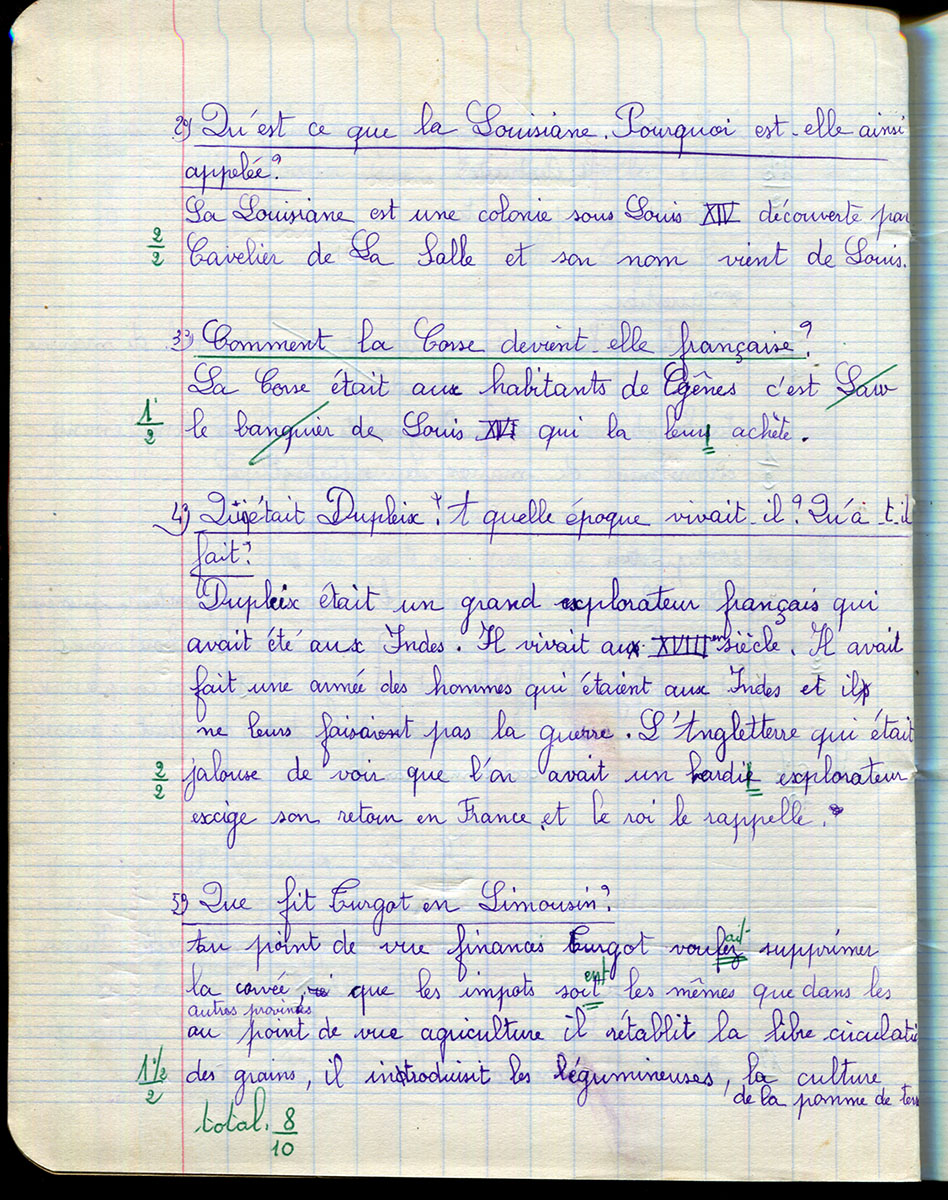 2°) Qu'est ce que la Louisiane. Pourquoi est-elle ainsi
appelée?
La Louisiane est une colonie sous Louis XIV découverte par
2/2 Cavelier de La Salle et son nom vient de Louis.
3°) Comment la Corse devient-elle française?
La Corse était aux habitants de Gênes c'est Law
1/2 le banquier de Louis XVI qui la leur achète.
4°) Qui était Dupleix? A quelle époque vivait-il? Qu'à-t-il
fait?
Dupleix était un grand explorateur français qui
avait été aux Indes. Il vivait au XVIII em siècle. Il avait
fait une armée des hommes qui étaient aux Indes et il
ne leurs faisaient pas la guerre. L'Angletterre qui était
2/2 jalouse de voir que l'on avait un hardit explorateur
excige son retour en France et le roi le rappelle.
5°) Que fit Turgot en Limousin?
Au point de vue finances Turgot voulait supprimer
la corvée, que les impots soient les mêmes que dans les
autres provinces
au point de vue agriculture il rétablit la libre circulati
1 1/2/2 des grains, il introduisit les légumineuses, la culture
de la pomme de terre
total. 8/10